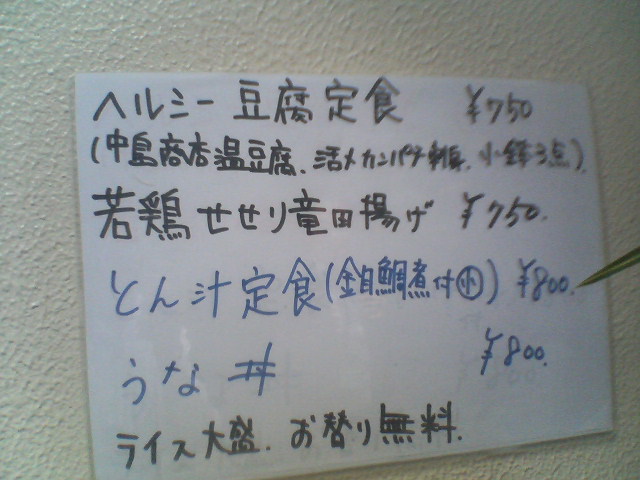 ヘルシー豆腐定食 ¥750
(中島商店温豆腐、活〆カンパチ刺身、小鉢3点)
若鶏せせり竜田揚げ ¥750.
とん汁定食(金目鯛煮付㊥) ¥800.
うな丼 ¥800.
ライス大盛. お替り無料.